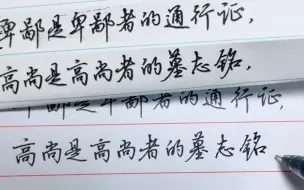 卑鄙是卑鄙者的通行证,
高尚是高尚者的墓志铭,
卑鄙是卑鄙者的通行证,
高尚是高尚者的墓志铭